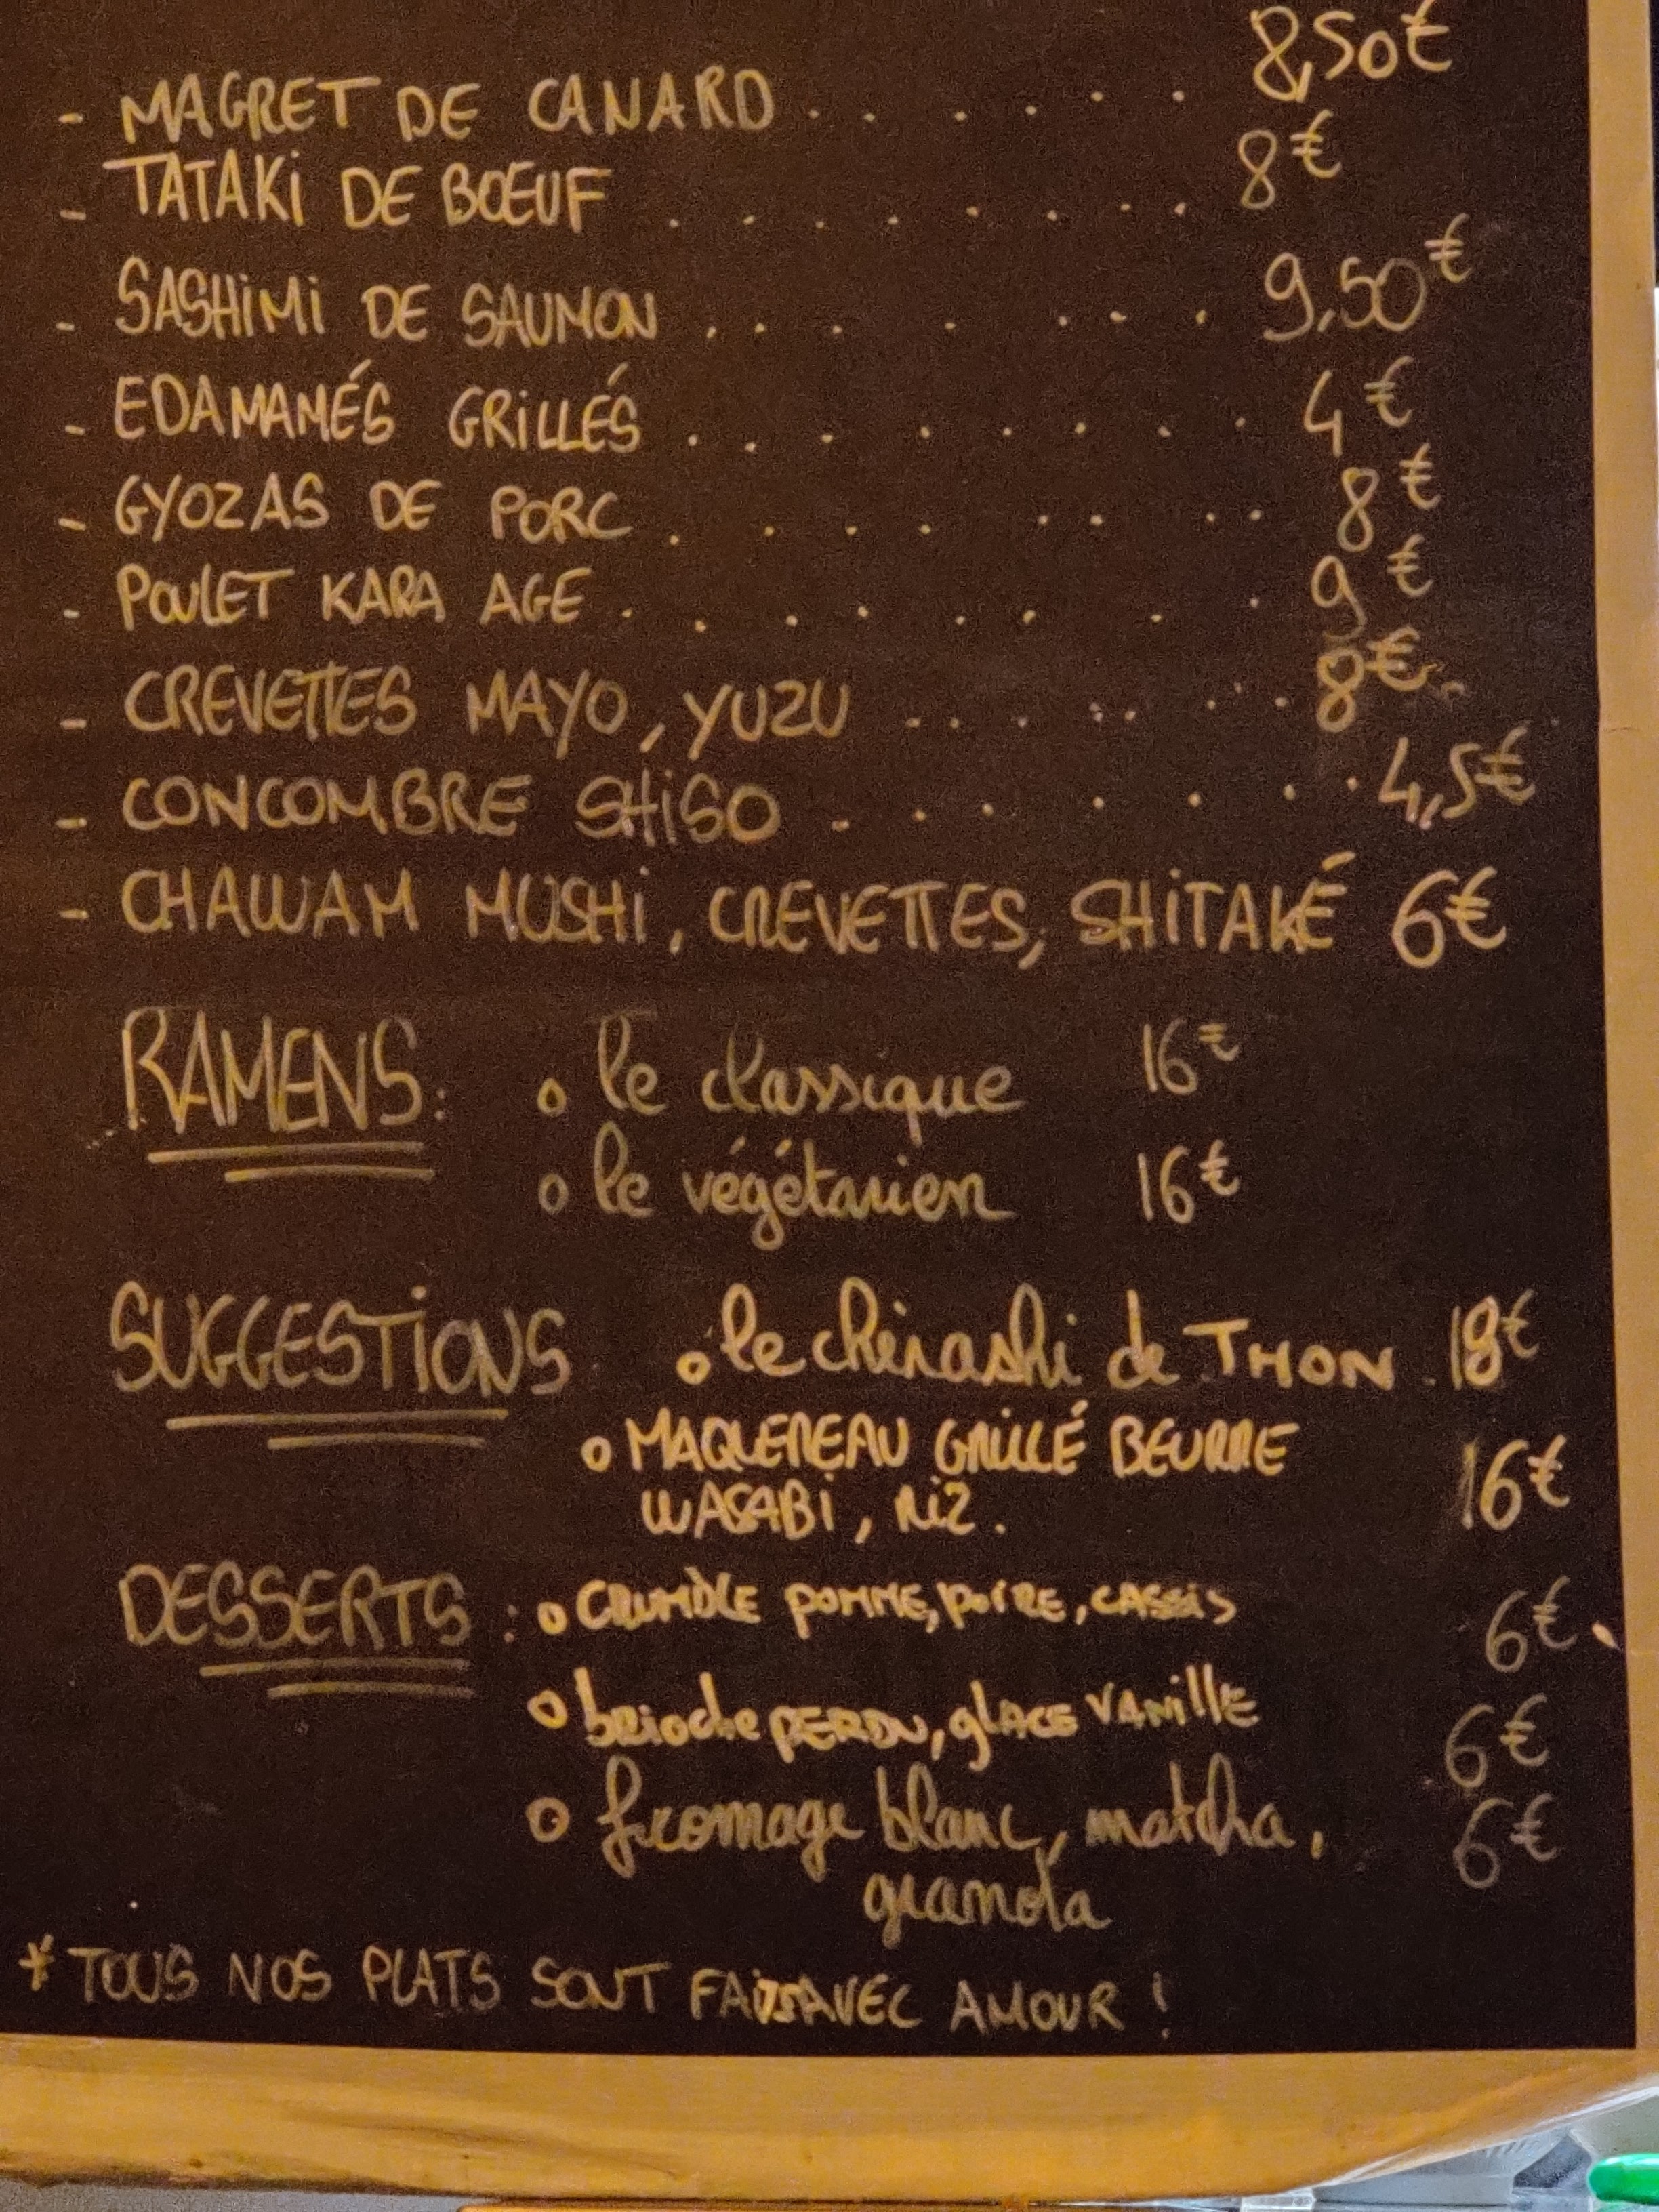 - MAGRET DE CANARD . . . . . . 8,50€
- TATAKi DE BOEUF . . . . . . . . 8€
- SASHiMi DE SAUMON . . . . . . . . 9,50€
- EDAMAMÉS GRiLLÉS . . . . . . . . 4€
- GYOZAS DE PORC . . . . . . . . 8€
- POULET KARA AGE . . . . . . . . 9€
- CREVETTES MAYO, YUZU . . . . . . . . 8€
- CONCOMBRE SHiSO . . . . . . . . 4,5€
- CHAWAM MUSHi, CREVETTES, SHiTAKÉ 6€
RAMENS: o le classique 16€
o le végétarien 16€
SUGGESTiONS o le chirashi de THON 18€
o MAQUEREAU GRiLLÉ BEURRE
WASABi, RiZ. 16€
DESSERTS : o CRUMBLE POMME, POiRE, CASSiS 6€
o brioche PERDU, glACE VANillE 6€
o fromage blanc, matcha, 6€
granola
* TOUS NOS PLATS SONT FAiTS AVEC AMOUR !